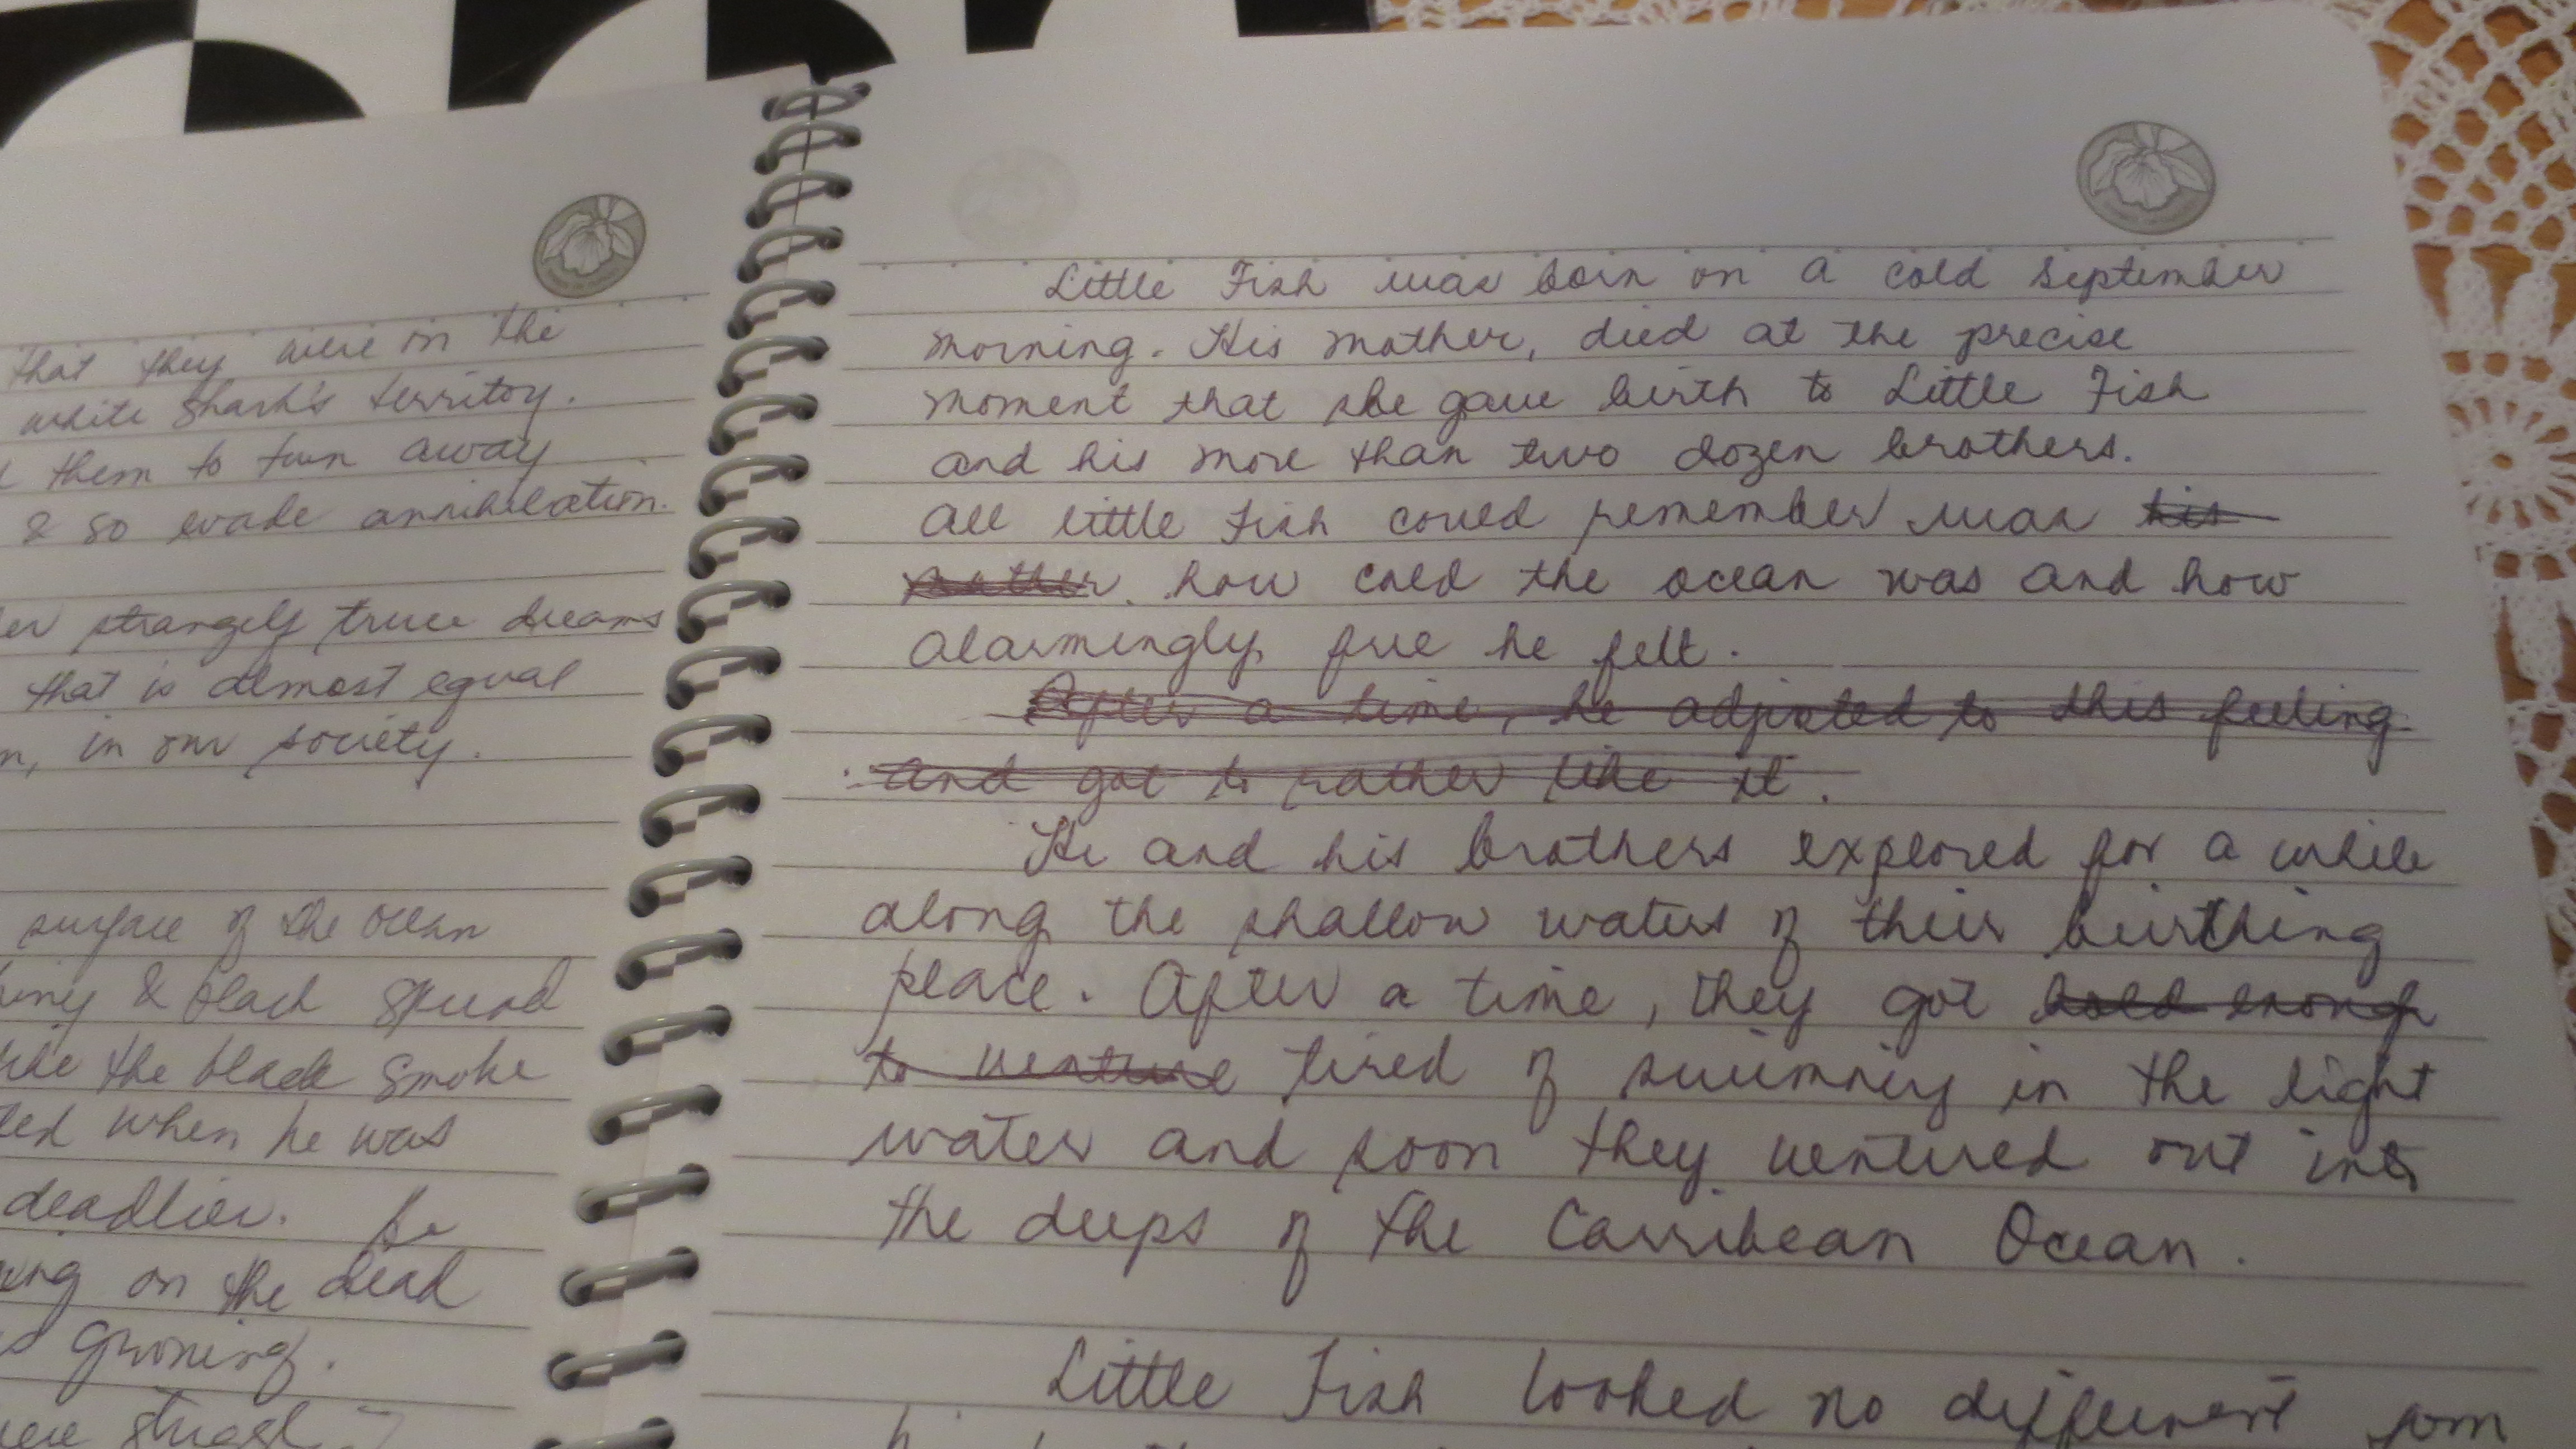 that they were in the
white shark's territoy.
them to turn away
& so evade annihilation.
strangely truce dreams
that is almost equal
in our society.
surface of the ocean
& black spread
the black smoke
when he was
deadlier. he
on the dead
growing.
Little Fish was born on a cold September
morning. His mother, died at the precise
moment that she gave birth to Little Fish
and his more than two dozen brothers.
All little Fish could remember was his
mother. how cold the ocean was and how
alarmingly free he felt.
After a time, he adjusted to this feeling
and got to rather like it.
He and his brothers explored for a while
along the shallow waters of their birthing
place. After a time, they got bold enough
to venture tired of swimming in the light
water and soon they ventured out into
the deeps of the Carribean Ocean.
Little Fish looked no different from